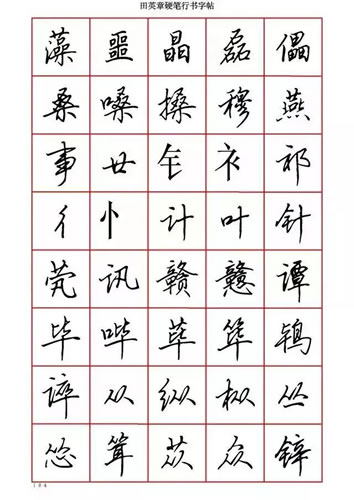 田英章硬笔行书字帖
藻 噩 晶 磊 儡
桑 嗓 搡 穆 燕
事 廿 钅 衤 祁
彳 忄 计 叶 针
茕 讯 赣 戆 谭
毕 哔 荜 筚 鸨
谇 从 纵 枞 丛
怂 耸 苁 众 锌
184